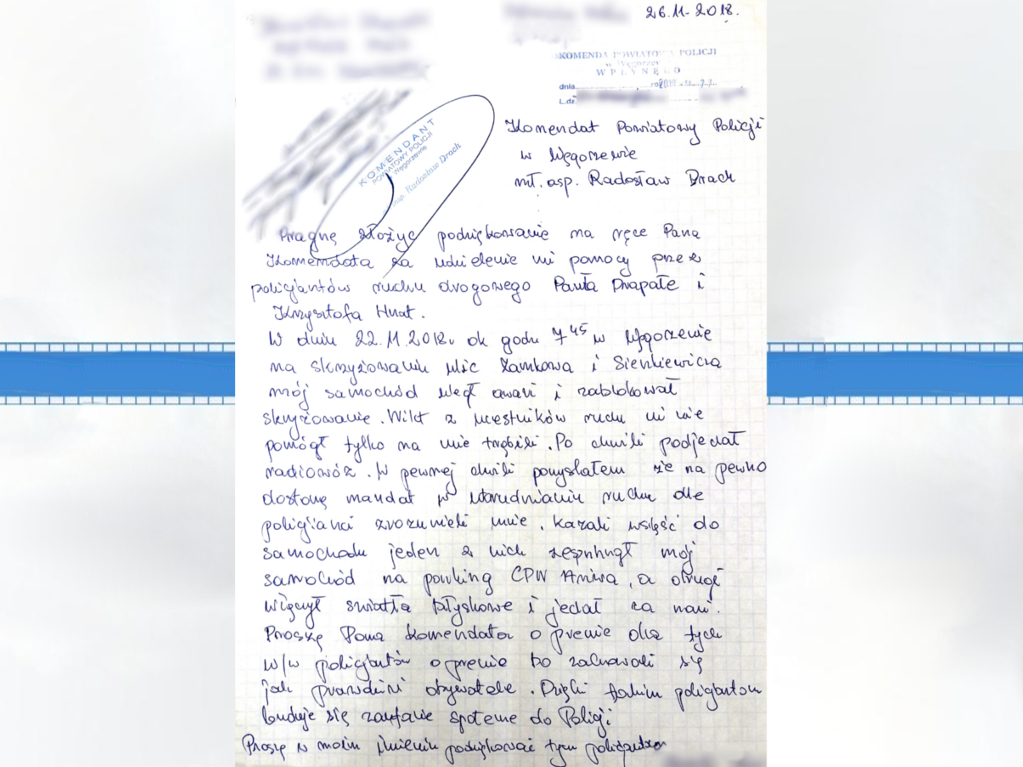 26.11.2018.
KOMENDA POWIATOWA POLICJI
w Węgorzewie
WPŁYNĘŁO
dnia
L.dz.
KOMENDANT
POWIATOWY POLICJI
w Węgorzewie
Radosław Drach
Komendat Powiatowy Policji
w Węgorzewie
mł. asp. Radosław Drach
Pragnę złożyć podziękowanie na ręce Pana
Komendata za udzielenie mi pomocy przez
policjantów ruchu drogowego Pawła Drapałę i
Krzysztofa Hnat.
W dniu 22.11.2018r ok godz 7 45 w Węgorzewie
na skrzyżowaniu ulic Zamkowa i Sienkiewicza
mój samochód uległ awari i zablokował
skrzyżowanie. Nikt z ucestników ruchu mi nie
pomógł tylko na mnie trąbili. Po chwili podjechał
radiowóz. W pewnej chwili pomyślałem że na pewno
dostanę mandat w utrudnianiu ruchu ale
policjanci zrozumieli mnie. Kazali wsiąść do
samochodu jeden z nich zepchnął mój
samochód na parking CPN Aniwa, a drugi
włączył światła błyskowe i jechał za nami.
Proszę Pana Komendata o premie dla tych
w/w policjantów o premie bo zachowali się
jak prawdziwi obywatele. Dzięki takim policjantom
buduje się zaufanie społeczne do Policji
Proszę w moim imieniu podziękować tym policjantom